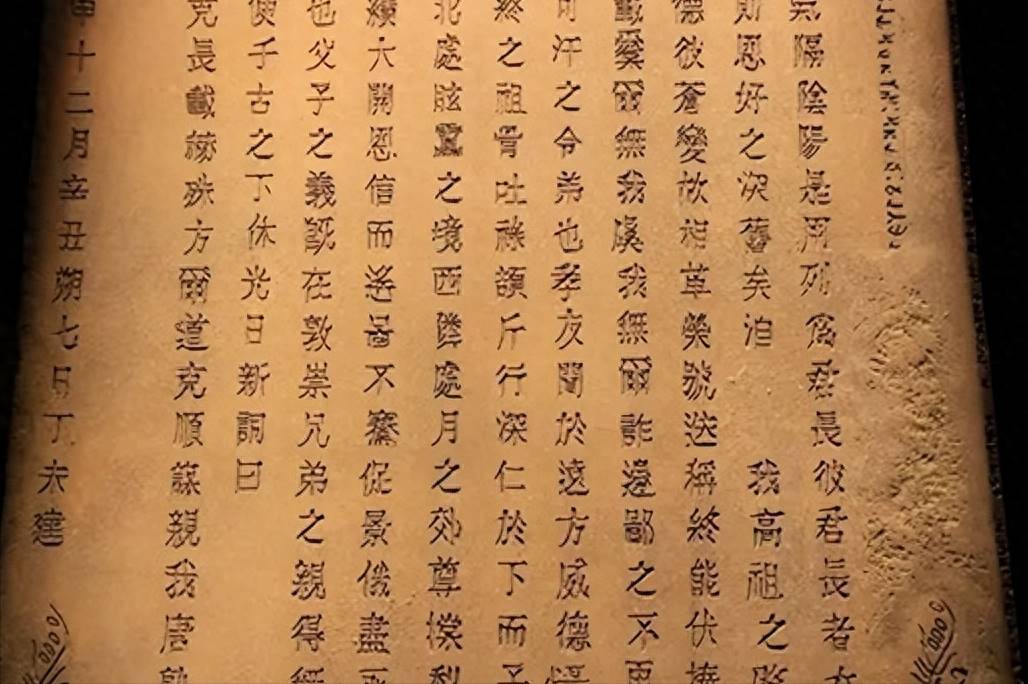 隔陰陽是用列爲君長彼君長者
恩好之深舊矣洎 我高祖之
德彼蒼變故相革榮號迭稱終能伏
載爰爾無我虞我無爾詐邊鄙之不
可汗之令弟也孝友聞於遠方威德
終之祖骨吐祿頡斤行深仁於下而子
北處眩靁之境西鄰處月之郊尊撐犁
大開恩信而遙圖不騫促景俄盡
也父子之義既在敦崇兄弟之親得無
使千古之下休光日新詞曰
克長載赫殊方爾道克順謀親我唐孰
申十二月辛丑朔七日丁未建